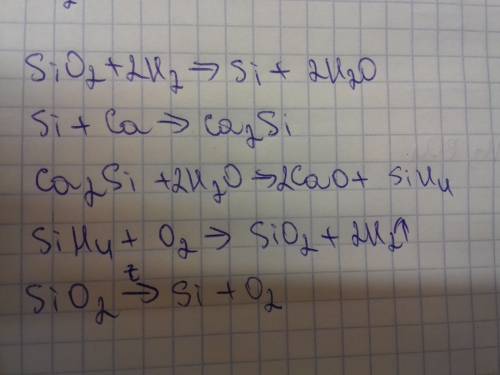 SiO₂ + 2H₂ ⇒ Si + 2H₂O
Si + Ca ⇒ Ca₂Si
Ca₂Si + 2H₂O ⇒ 2CaO + SiH₄
SiH₄ + O₂ ⇒ SiO₂ + 2H₂↑
SiO₂ ᵗ⇒ Si + O₂